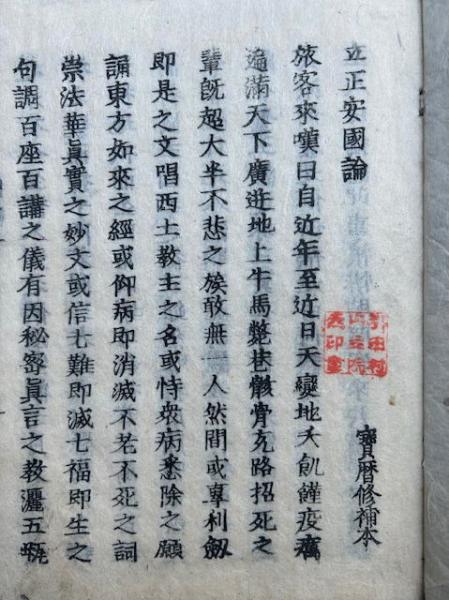 立正安國論
寶暦修補本
旅客來嘆曰自近年至近日天變地夭飢饉疫癘
遍滿天下廣迸地上牛馬斃巷骸骨充路招死之
輩既超大半不悲之族敢無一人然間或專利劔
即是之文唱西土教主之名或恃衆病悉除之願
誦東方如來之經或仰病即消滅不老不死之詞
崇法華眞實之妙文或信七難即滅七福即生之
句調百座百講之儀有因秘密眞言之教灑五瓶